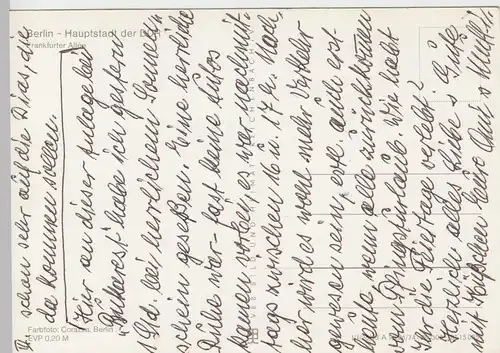 Berlin - Hauptstadt der DDR
Frankfurter Allee
schon sehr auf die Dias, die
da kommen sollen.
Hier an dieser Anlage bei
"Bukarest" habe ich gestern
1 Std. bei herrlichem Sonnen-
schein gesessen. Eine herrliche
Ruhe war - fast keine Autos
kamen vorbei, es war nachmit-
tags zwischen 16 u. 17 h. Nach-
her wird es wohl mehr Verkehr
gewesen sein, evtl. auch erst
heute, wenn alle zurückkommen
vom Pfingsturlaub. Wie habt
Ihr die Feiertage verlebt?
Herzlich alles Liebe u. Gute
mit Küßchen Eure Omi u Mutti
Farbfoto: Corazza, Berlin
EVP 0,20 M
VEB BILD UND HEIMAT REICHENBACH